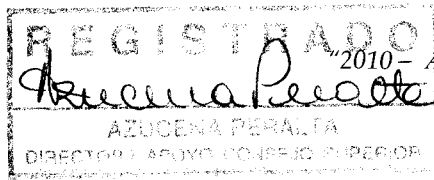 REGISTRADO
"2010 – A
Azucena Peralta
AZUCENA PERALTA
DIRECTORA APOYO CONSEJO SUPERIOR